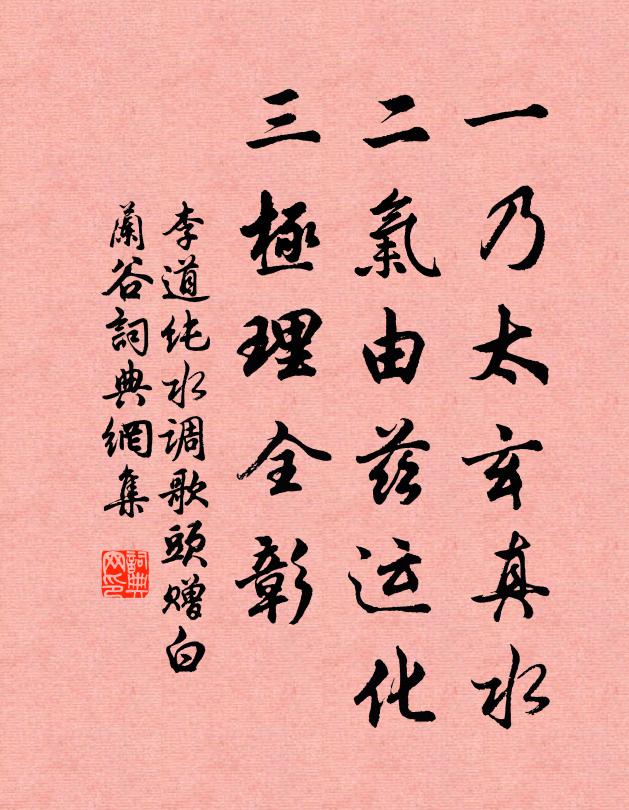 一乃太玄真水
二氣由茲运化
三極理全彰
李道纯水调歌頭赠白
蘭谷詞典網集
詞典网印